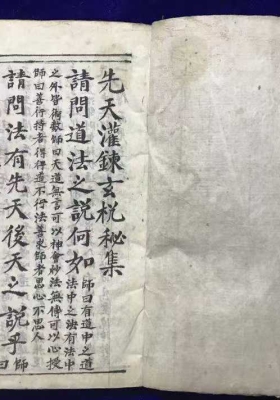 先天灌鍊玄梲秘集
請問道法之說何如師曰有道中之道
法中之法有法中
之外皆術數師曰天道無言可以神會妙法無傳可以心授
師曰善行持者得得道不行法善求師者思心不思人
請問法有先天後天之說乎師
曰